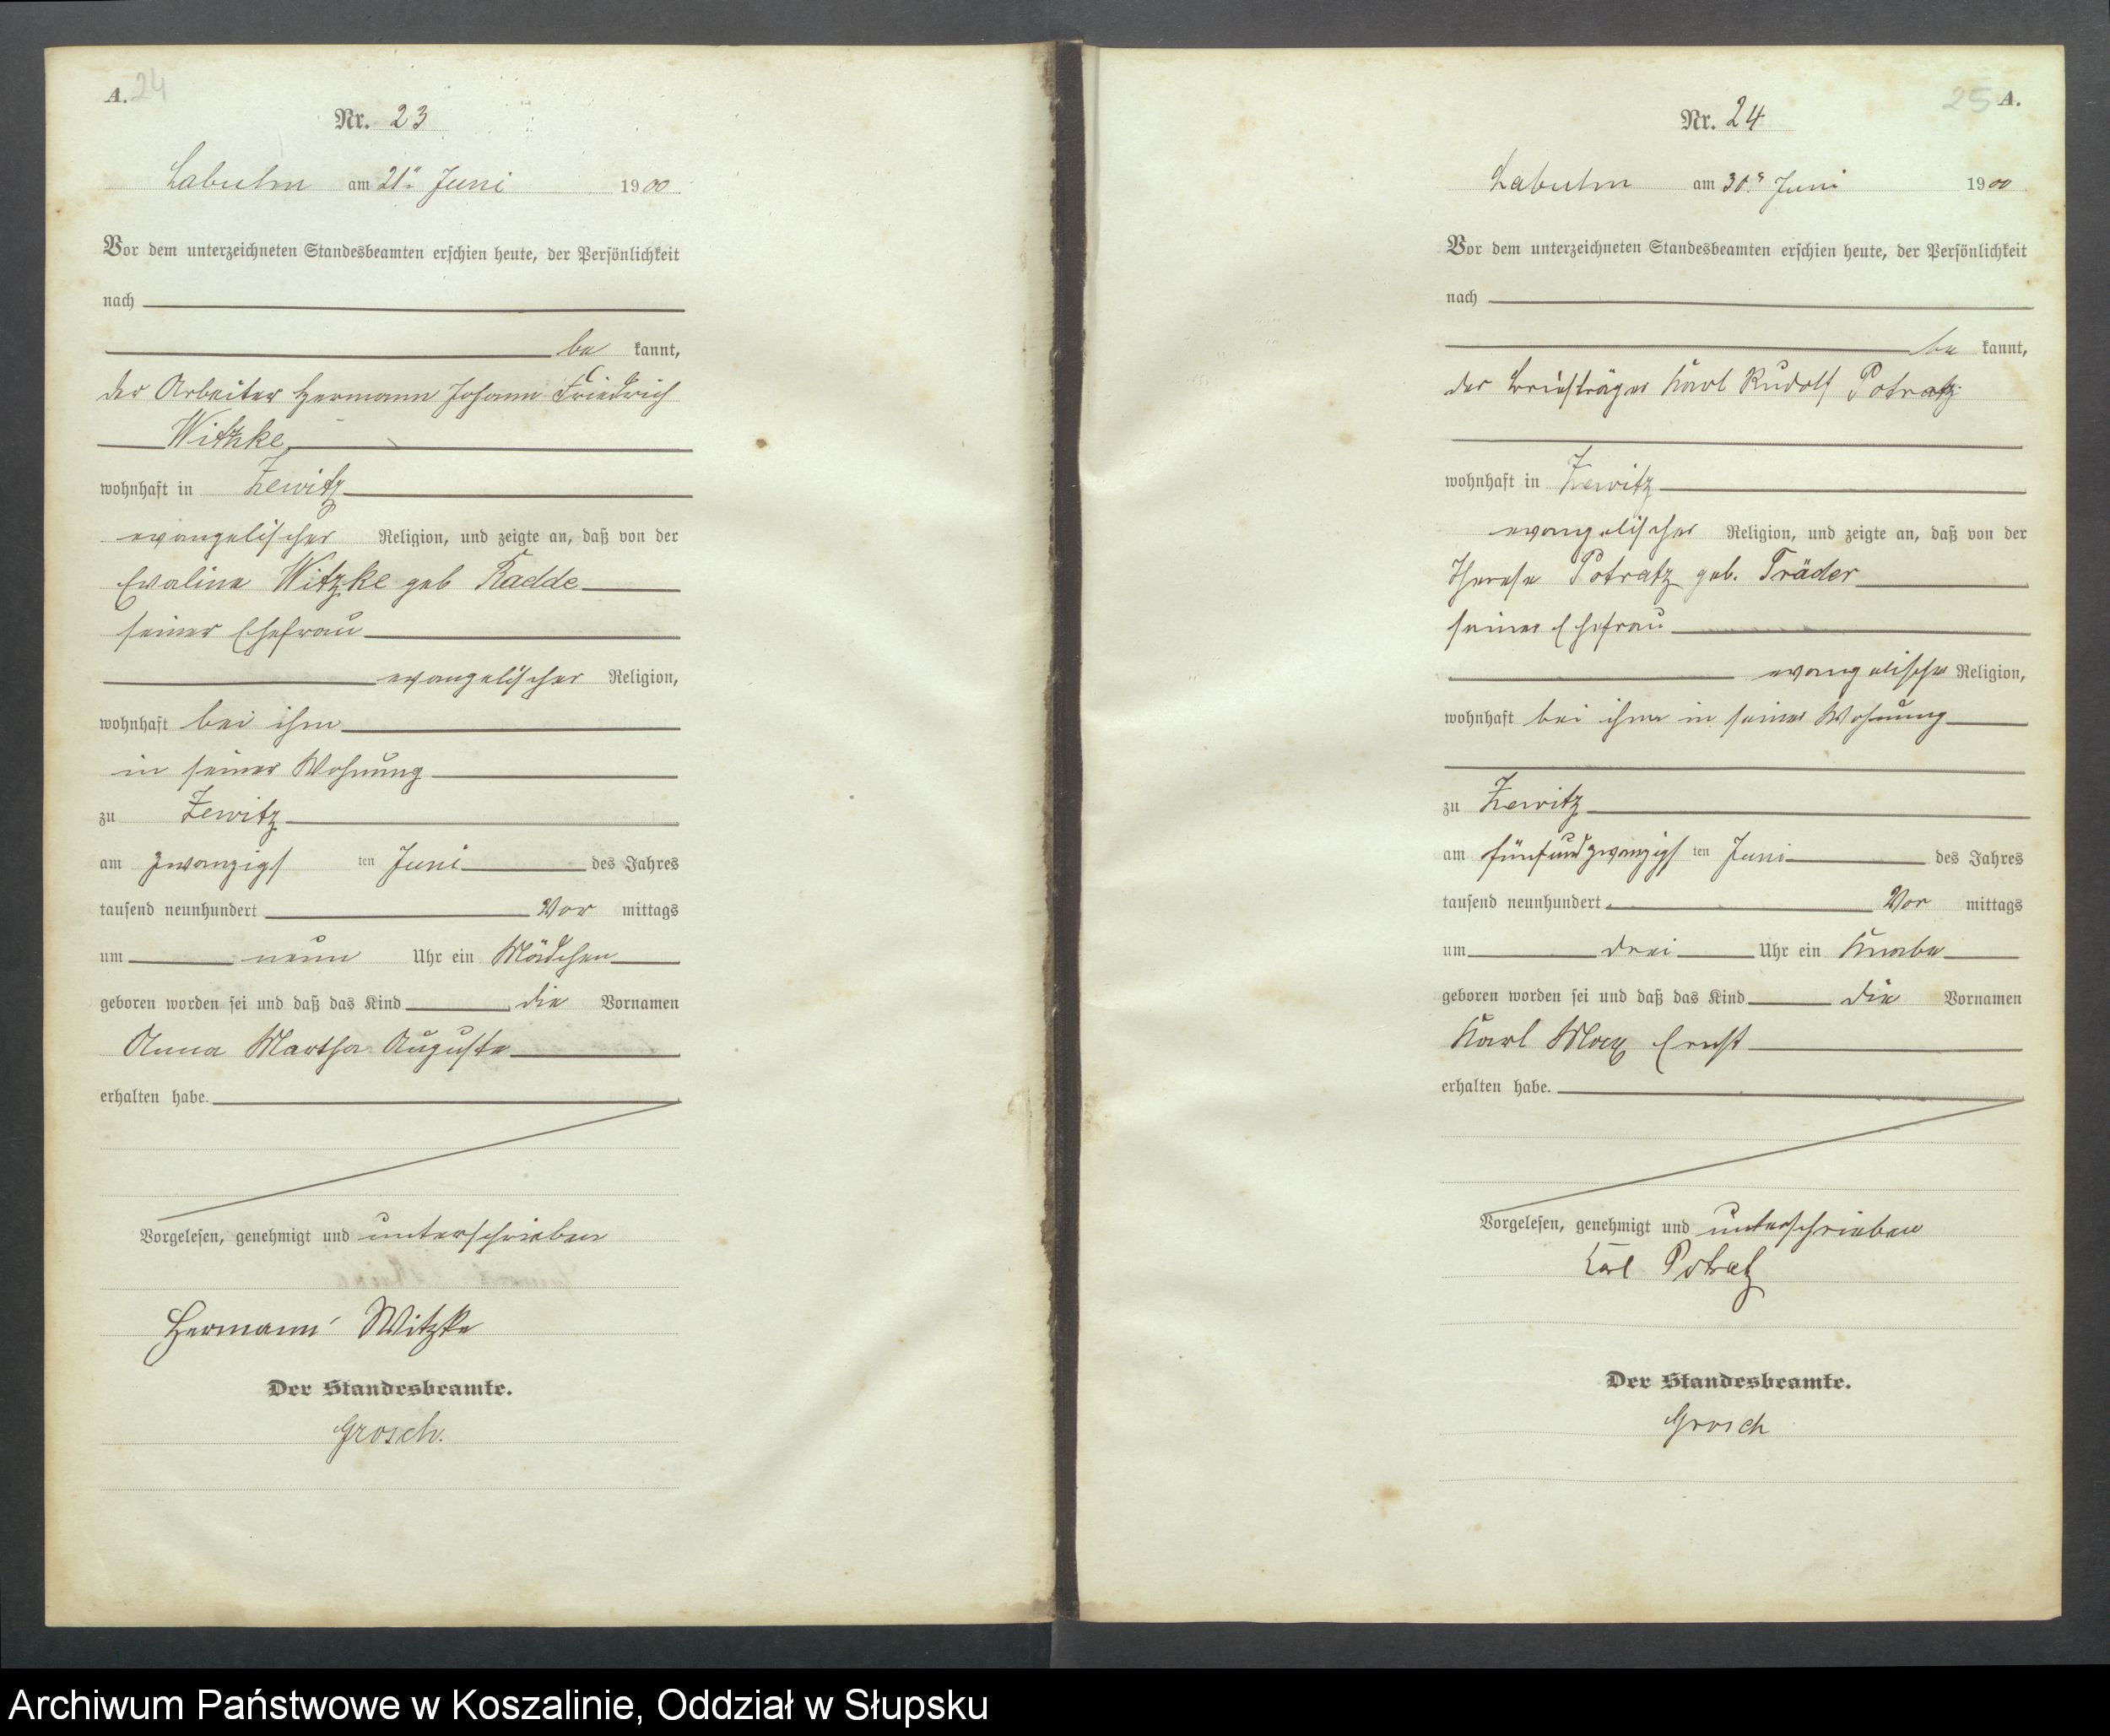 A. 24
Nr. 23
Labuhn am 21ⁿ Juni 1900
Vor dem unterzeichneten Standesbeamten erschien heute, der Persönlichkeit
nach
be kannt,
der Arbeiter Hermann Johann Friedrich
Witzke
wohnhaft in Zewitz
evangelischer Religion, und zeigte an, daß von der
Evaline Witzke geb Radde
seiner Ehefrau
evangelischer Religion,
wohnhaft bei ihm
in seiner Wohnung
zu Zewitz
am zwanzigs ten Juni des Jahres
tausend neunhundert Vor mittags
um neun Uhr ein Mädchen
geboren worden sei und daß das Kind die Vornamen
Anna Martha Auguste
erhalten habe.
Vorgelesen, genehmigt und unterschrieben
Hermann Witzke
Der Standesbeamte.
Grosch.
25 A.
Nr. 24
Labuhn am 30ⁿ Juni 1900
Vor dem unterzeichneten Standesbeamten erschien heute, der Persönlichkeit
nach
be kannt,
der Briefträger Karl Rudolf Potratz
wohnhaft in Zewitz
evangelischer Religion, und zeigte an, daß von der
Therese Potratz geb. Träder
seiner Ehefrau
evangelischer Religion,
wohnhaft bei ihm in seiner Wohnung
zu Zewitz
am fünfundzwanzigs ten Juni des Jahres
tausend neunhundert Vor mittags
um drei Uhr ein Knabe
geboren worden sei und daß das Kind die Vornamen
Karl Max Ernst
erhalten habe.
Vorgelesen, genehmigt und unterschrieben
Karl Potratz
Der Standesbeamte.
Grosch
Archiwum Państwowe w Koszalinie, Oddział w Słupsku